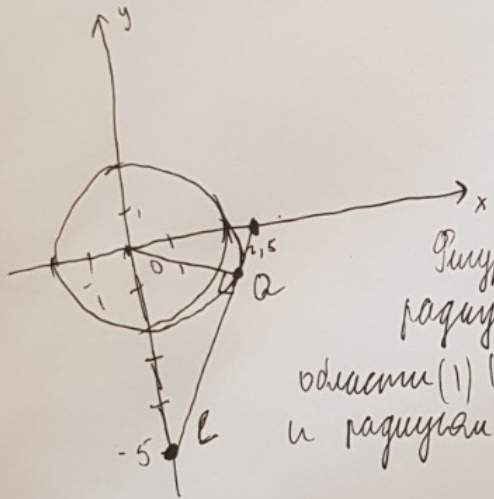 y
x
1
0
2,5
Q
-1
Фигу
радиу
области (1)
и радиусом
-5